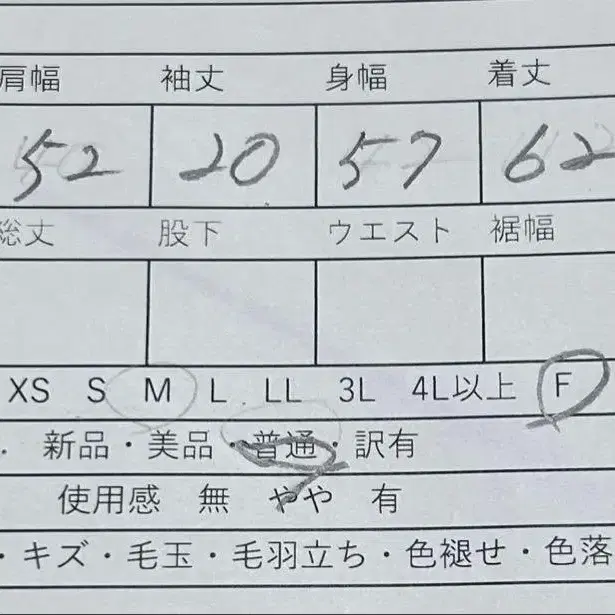 肩幅 袖丈 身幅 着丈
52 20 57 62
総丈 股下 ウエスト 裾幅
XS S M L LL 3L 4L以上 F
・新品・美品・普通・訳有
使用感 無 やや 有
・キズ・毛玉・毛羽立ち・色褪せ・色落